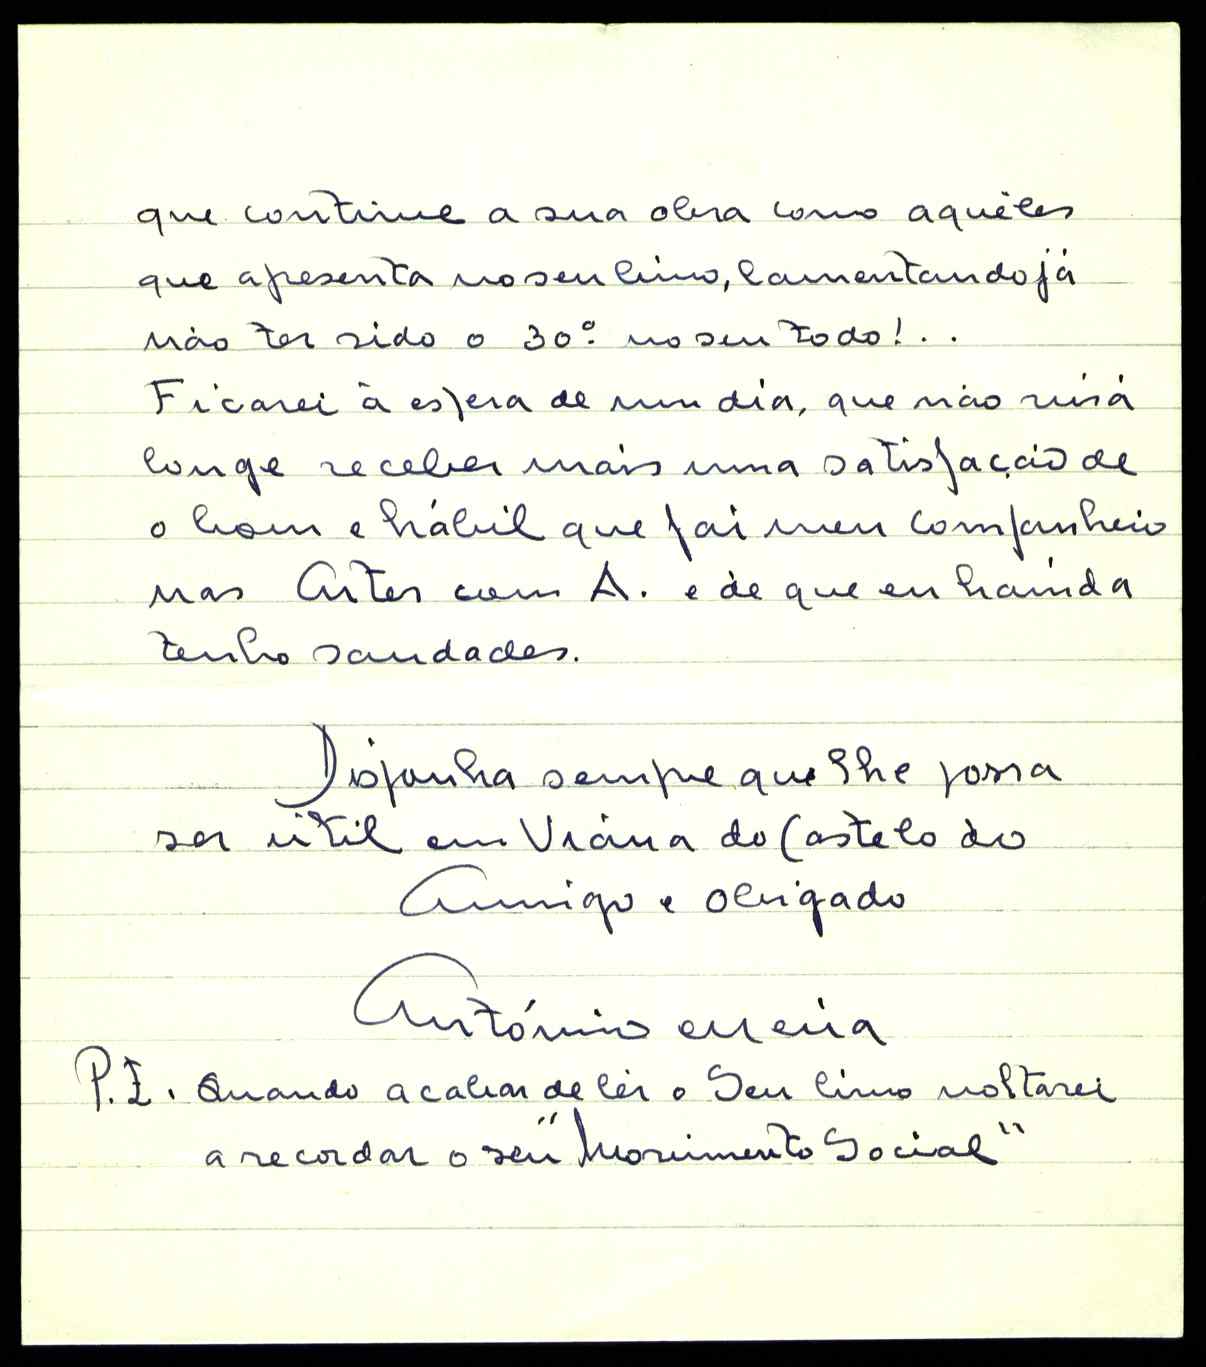 que continue a sua obra como aquêles
que apresenta no seu livro, lamentando já
não ter sido o 30º. no seu todo!..
Ficarei à espera de um dia, que não virá
longe receber mais uma satisfação de
o bom e hábil que foi meu companheiro
nas Artes com A. e de que eu hainda
tenho saudades.
Disponha sempre que lhe possa
ser útil em Viana do Castelo do
Amigo e obrigado
António Meira
P.S. Quando acabar de lêr o Seu livro voltarei
a recordar o seu "Movimento Social"